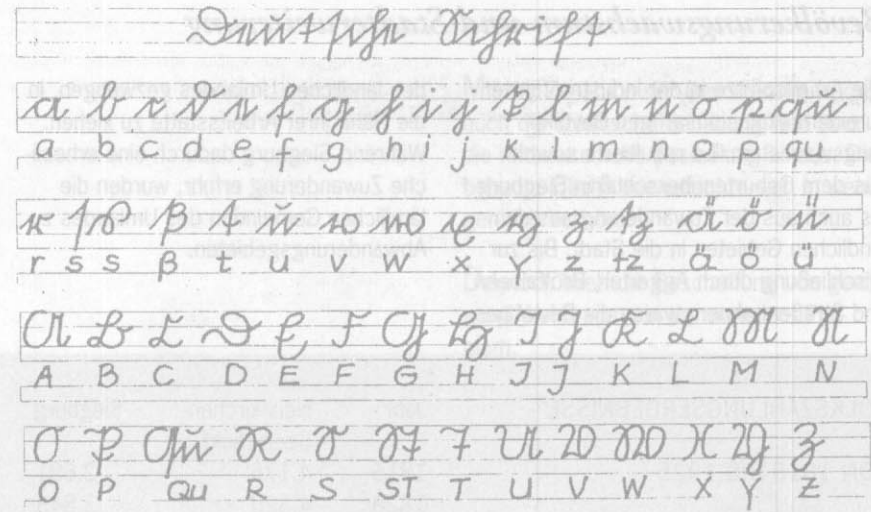 Deutsche Schrift
a b c d e f g h i j k l m n o p qu
a b c d e f g h i j k l m n o p qu
r s s ß t u v w x y z tz ä ö ü
r s s β t u v w x y z tz ä ö ü
A B C D E F G H I J K L M N
A B C D E F G H J J K L M N
O P Qu R S St T U V W X Y Z
O P Qu R S ST T U V W X Y Z